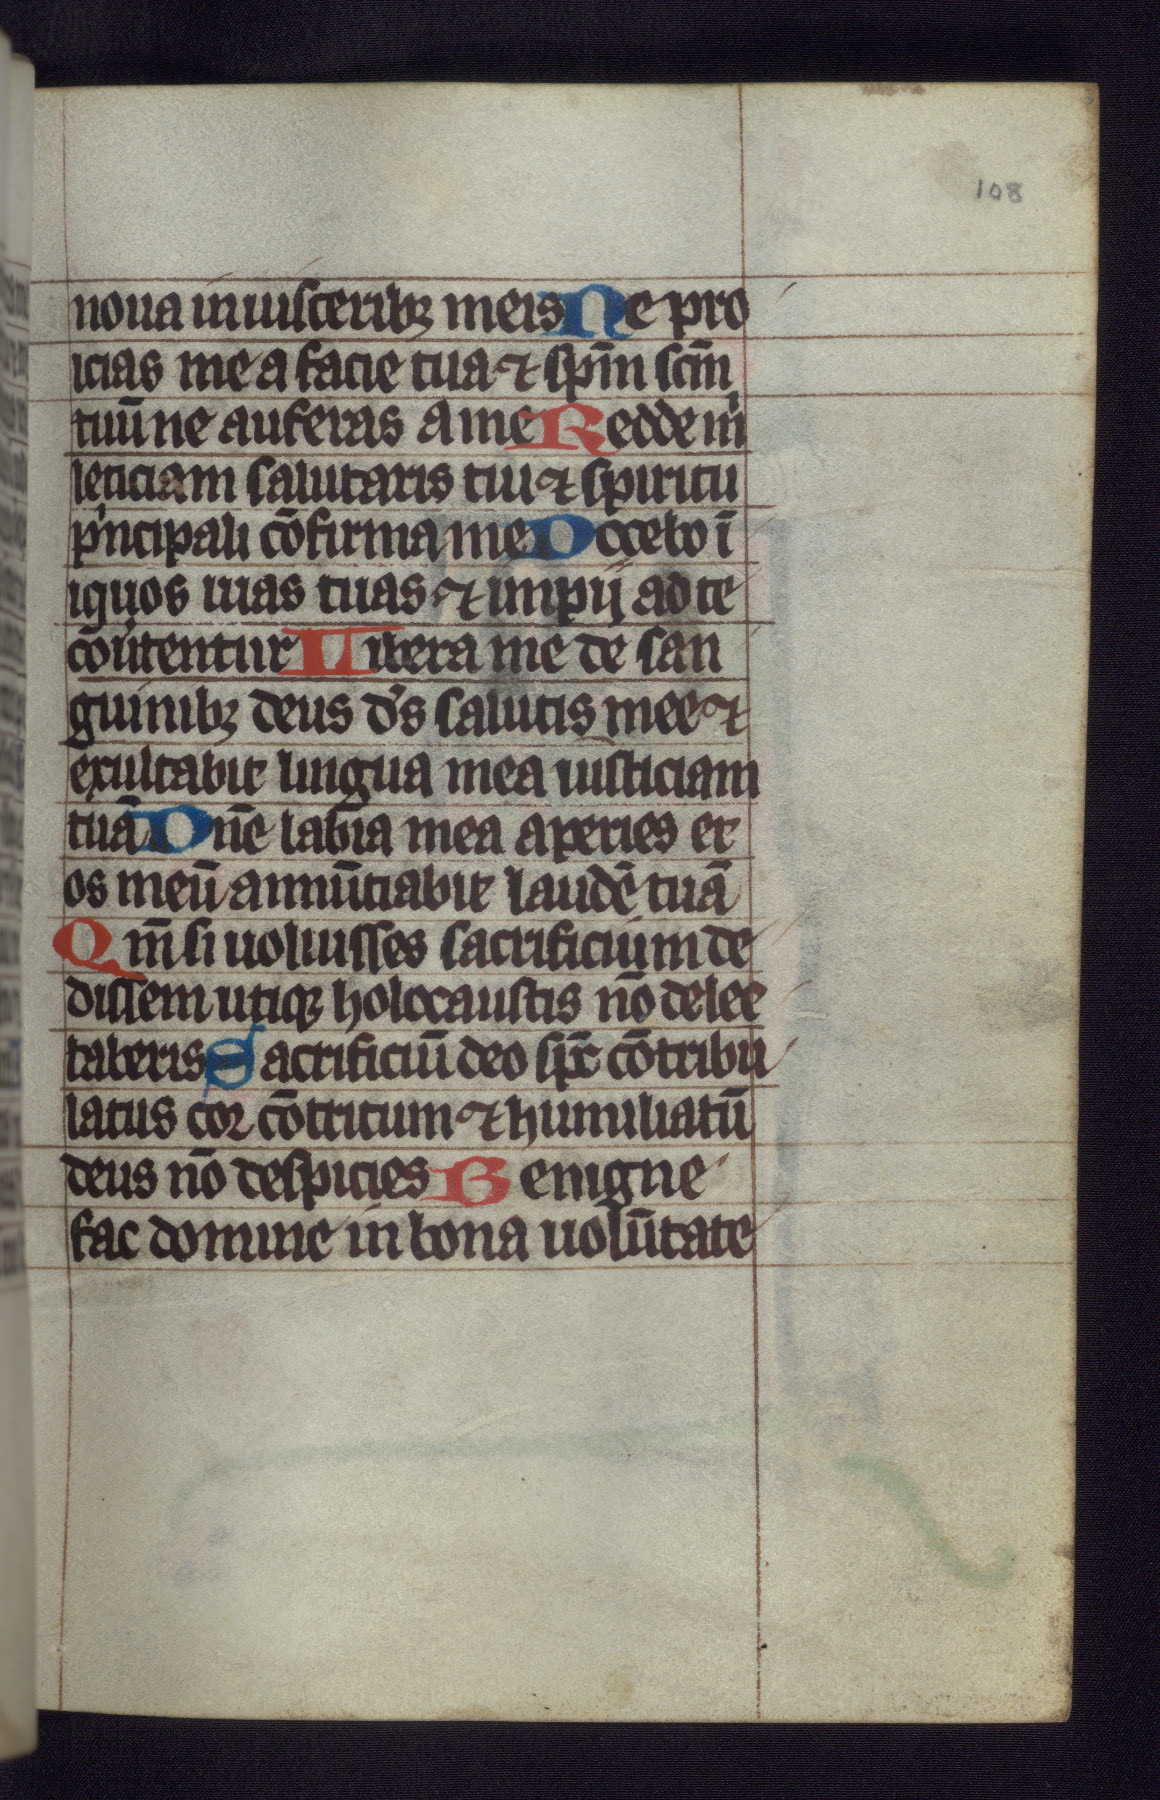 108
noua in uisceribꝫ meis Ne pro
icias me a facie tua ⁊ sp̄m sc̄m
tuū ne auferas a me Redde m̄
leticiam salutaris tui ⁊ spiritu
p'ncipali cōfirma me Docebo ī
iquos uias tuas ⁊ impij ad te
cōu'tentur Libera me de san
guinibꝫ deus d's salutis mee ⁊
exultabit lingua mea iusticiam
tuā Dn̄e labia mea aperies et
os meū annūciabit laudē tuā
Qm̄ si uoluisses sacrificium de
dissem utiqꝫ holocaustis nō delec
taberis Sacrificiū deo sp̄c cōtribu
latus cor cōtritum ⁊ humiliatū
deus nō despicies Benigne
fac domine in bona uolūtate